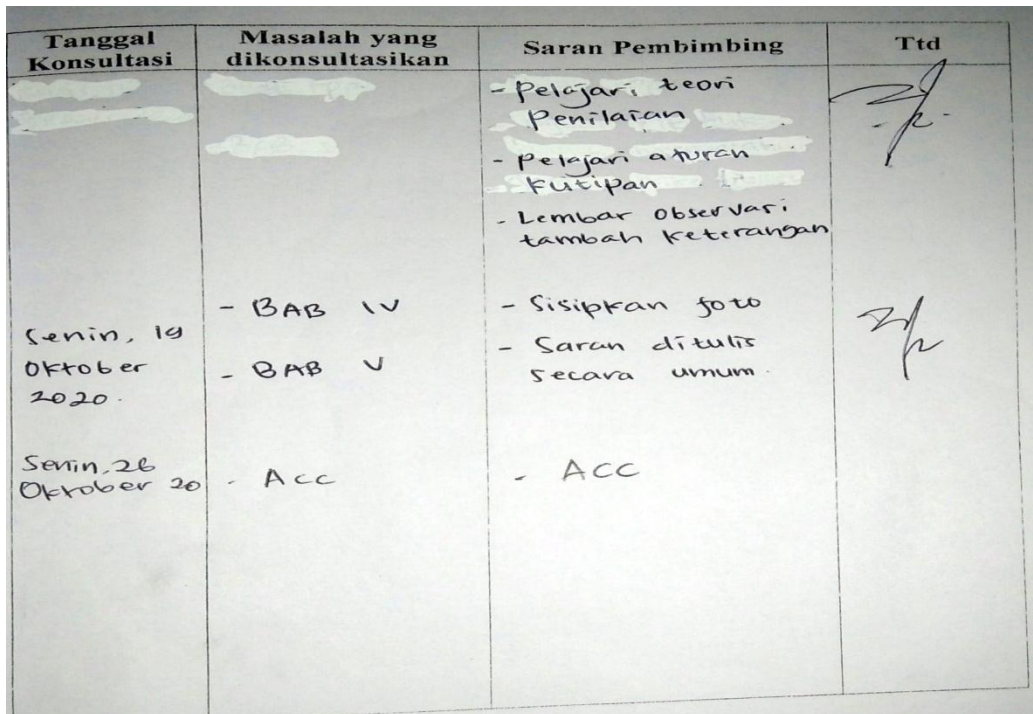 Tanggal Konsultasi
Masalah yang dikonsultasikan
Saran Pembimbing
Ttd
- Pelajari teori
Penilaian
- Pelajari aturan
kutipan
- Lembar observasi
tambah keterangan
Senin, 19
Oktober
2020.
- BAB IV
- BAB V
- Sisipkan foto
- Saran ditulis
secara umum.
Senin, 26
Oktober 20
- Acc
- ACC